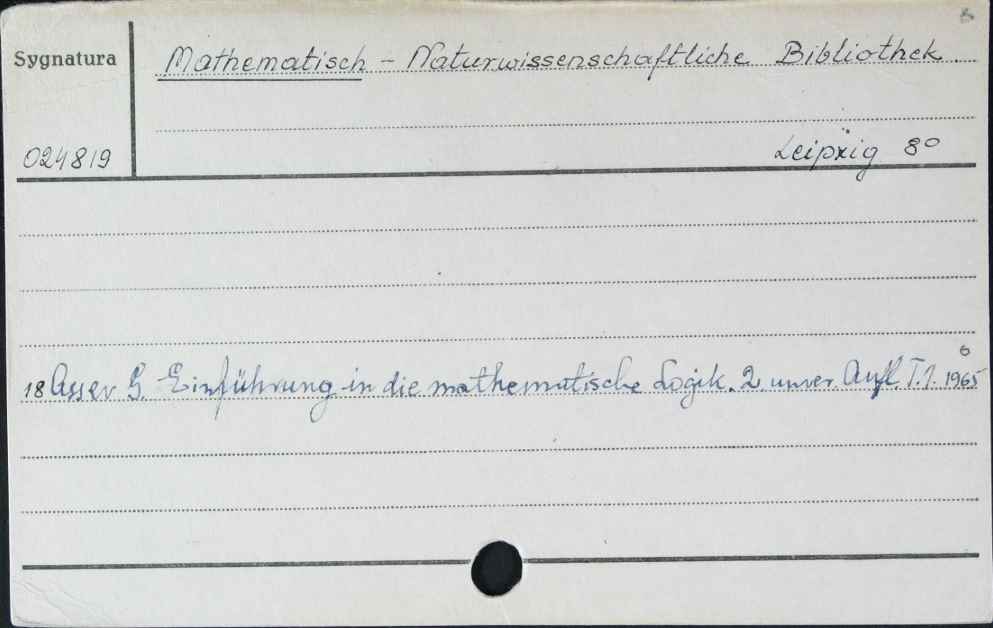 Sygnatura
Mathematisch - Naturwissenschaftliche Bibliothek
024819
Leipzig 8°
18 Asser G. Einführung in die mathematische Logik. 2 unver Aufl. T.1. 1965
6